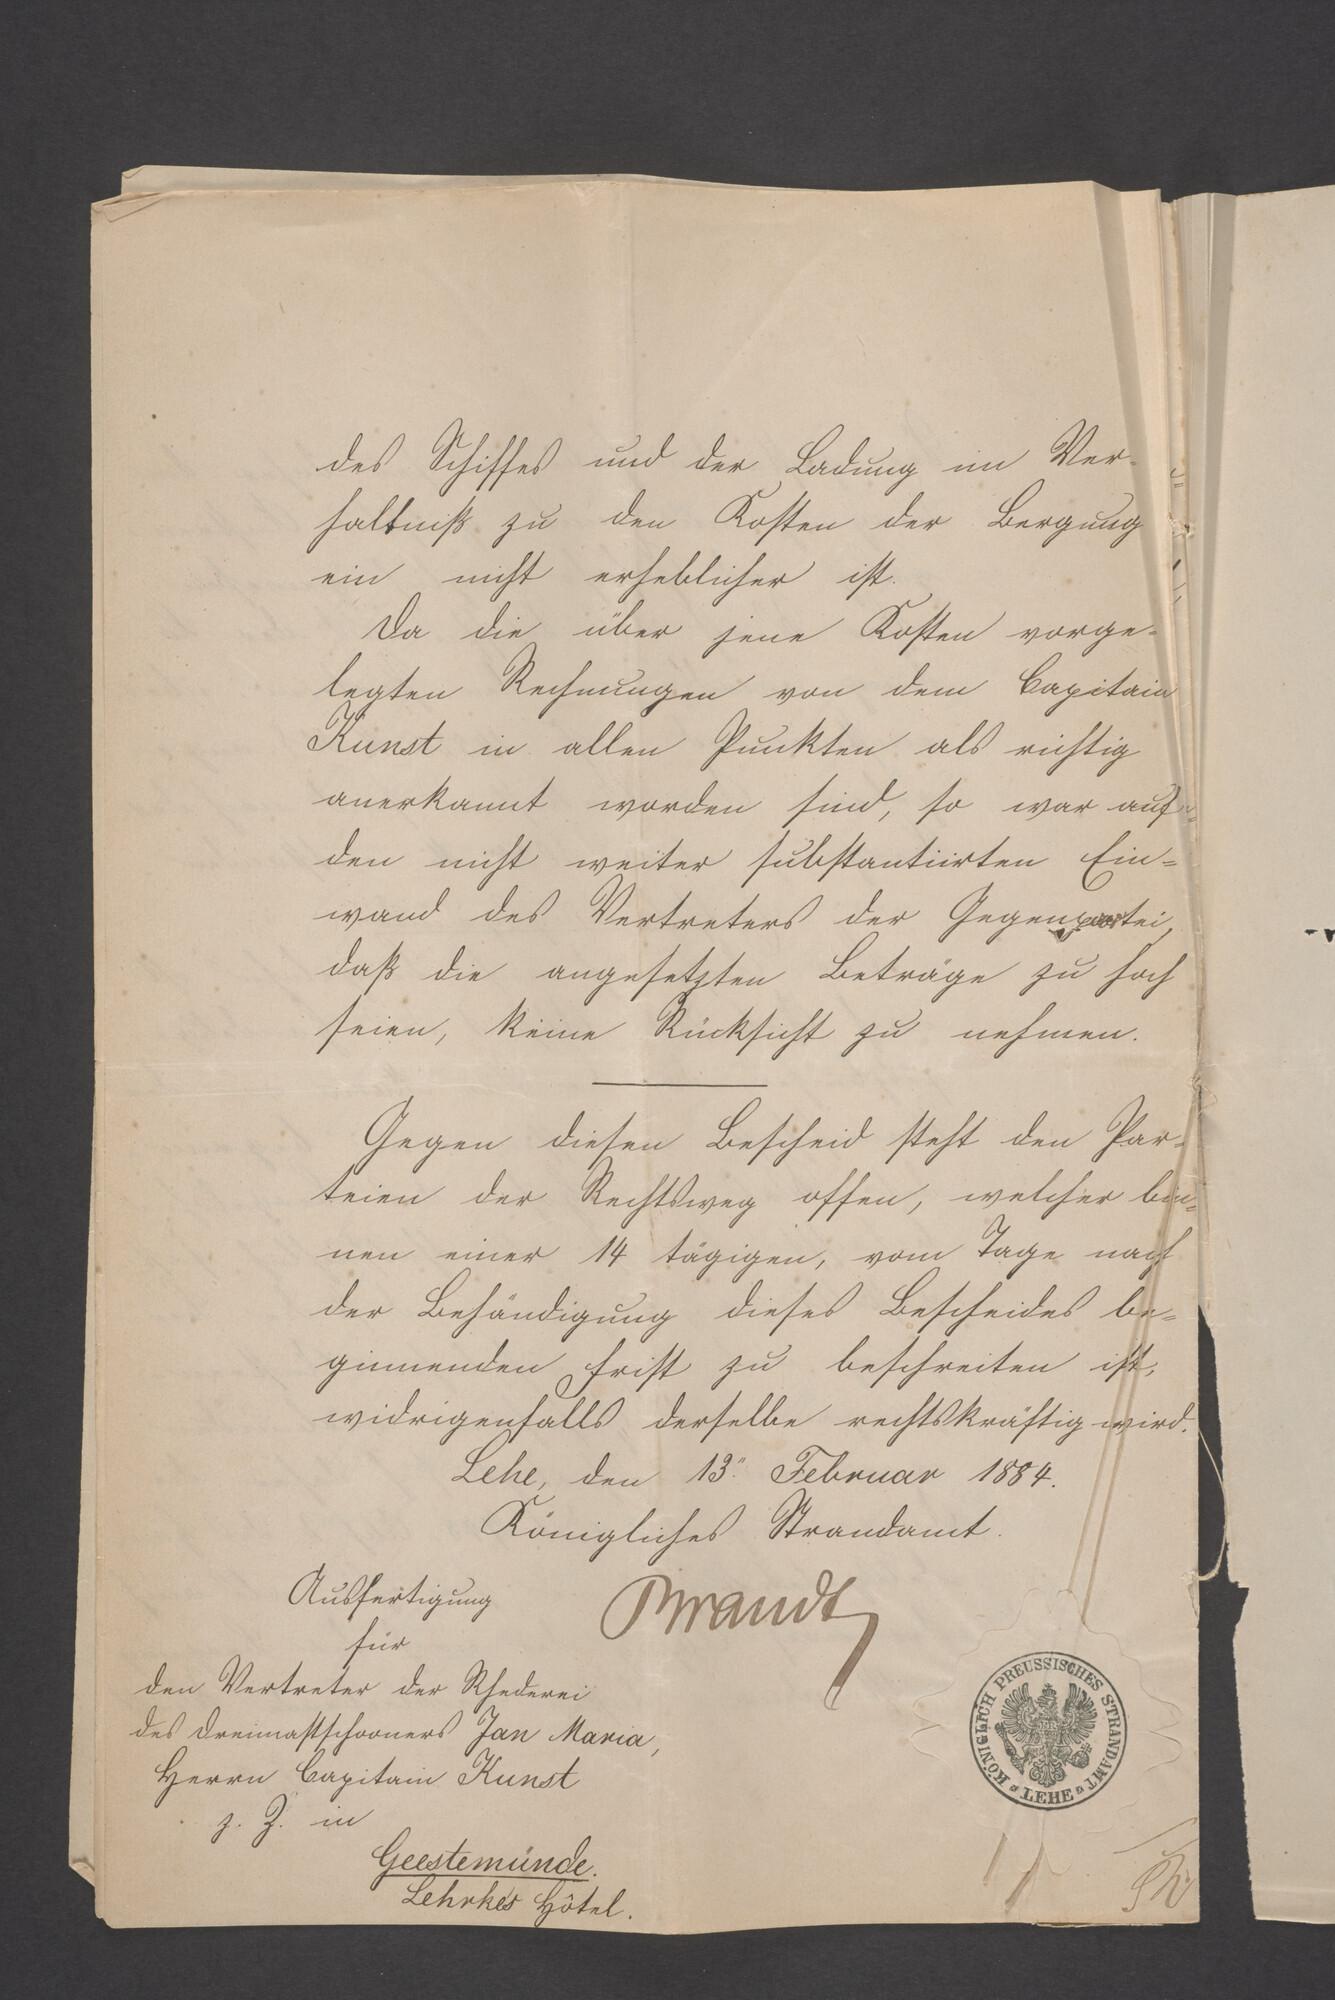 des Schiffes und der Ladung im Ver-
hältniß zu den Kosten der Bergung
ein nicht erheblicher ist.
Da die über jene Kosten vorge-
legten Rechnungen von dem Capitain
Kunst in allen Punkten als richtig
anerkannt worden sind, so war auf
den nicht weiter substantiirten Ein-
wand des Vertreters der Gegenpartei,
daß die angesetzten Beträge zu hoch
seien, keine Rücksicht zu nehmen.
Gegen diesen Bescheid steht den Par-
teien der Rechtsweg offen, welcher bin-
nen einer 14 tägigen, vom Tage nach
der Behändigung dieses Bescheides be-
ginnenden Frist zu beschreiten ist,
widrigenfalls derselbe rechtskräftig wird.
Lehe, den 13. Februar 1884.
Königliches Strandamt.
Brandt
Ausfertigung
für
den Vertreter der Rhederei
des Dreimastschooners Jan Maria,
Herrn Capitain Kunst
z. Z. in
Geestemünde.
Lehrkes Hôtel.
KÖNIGLICH PREUSSISCHES STRANDAMT
LEHE